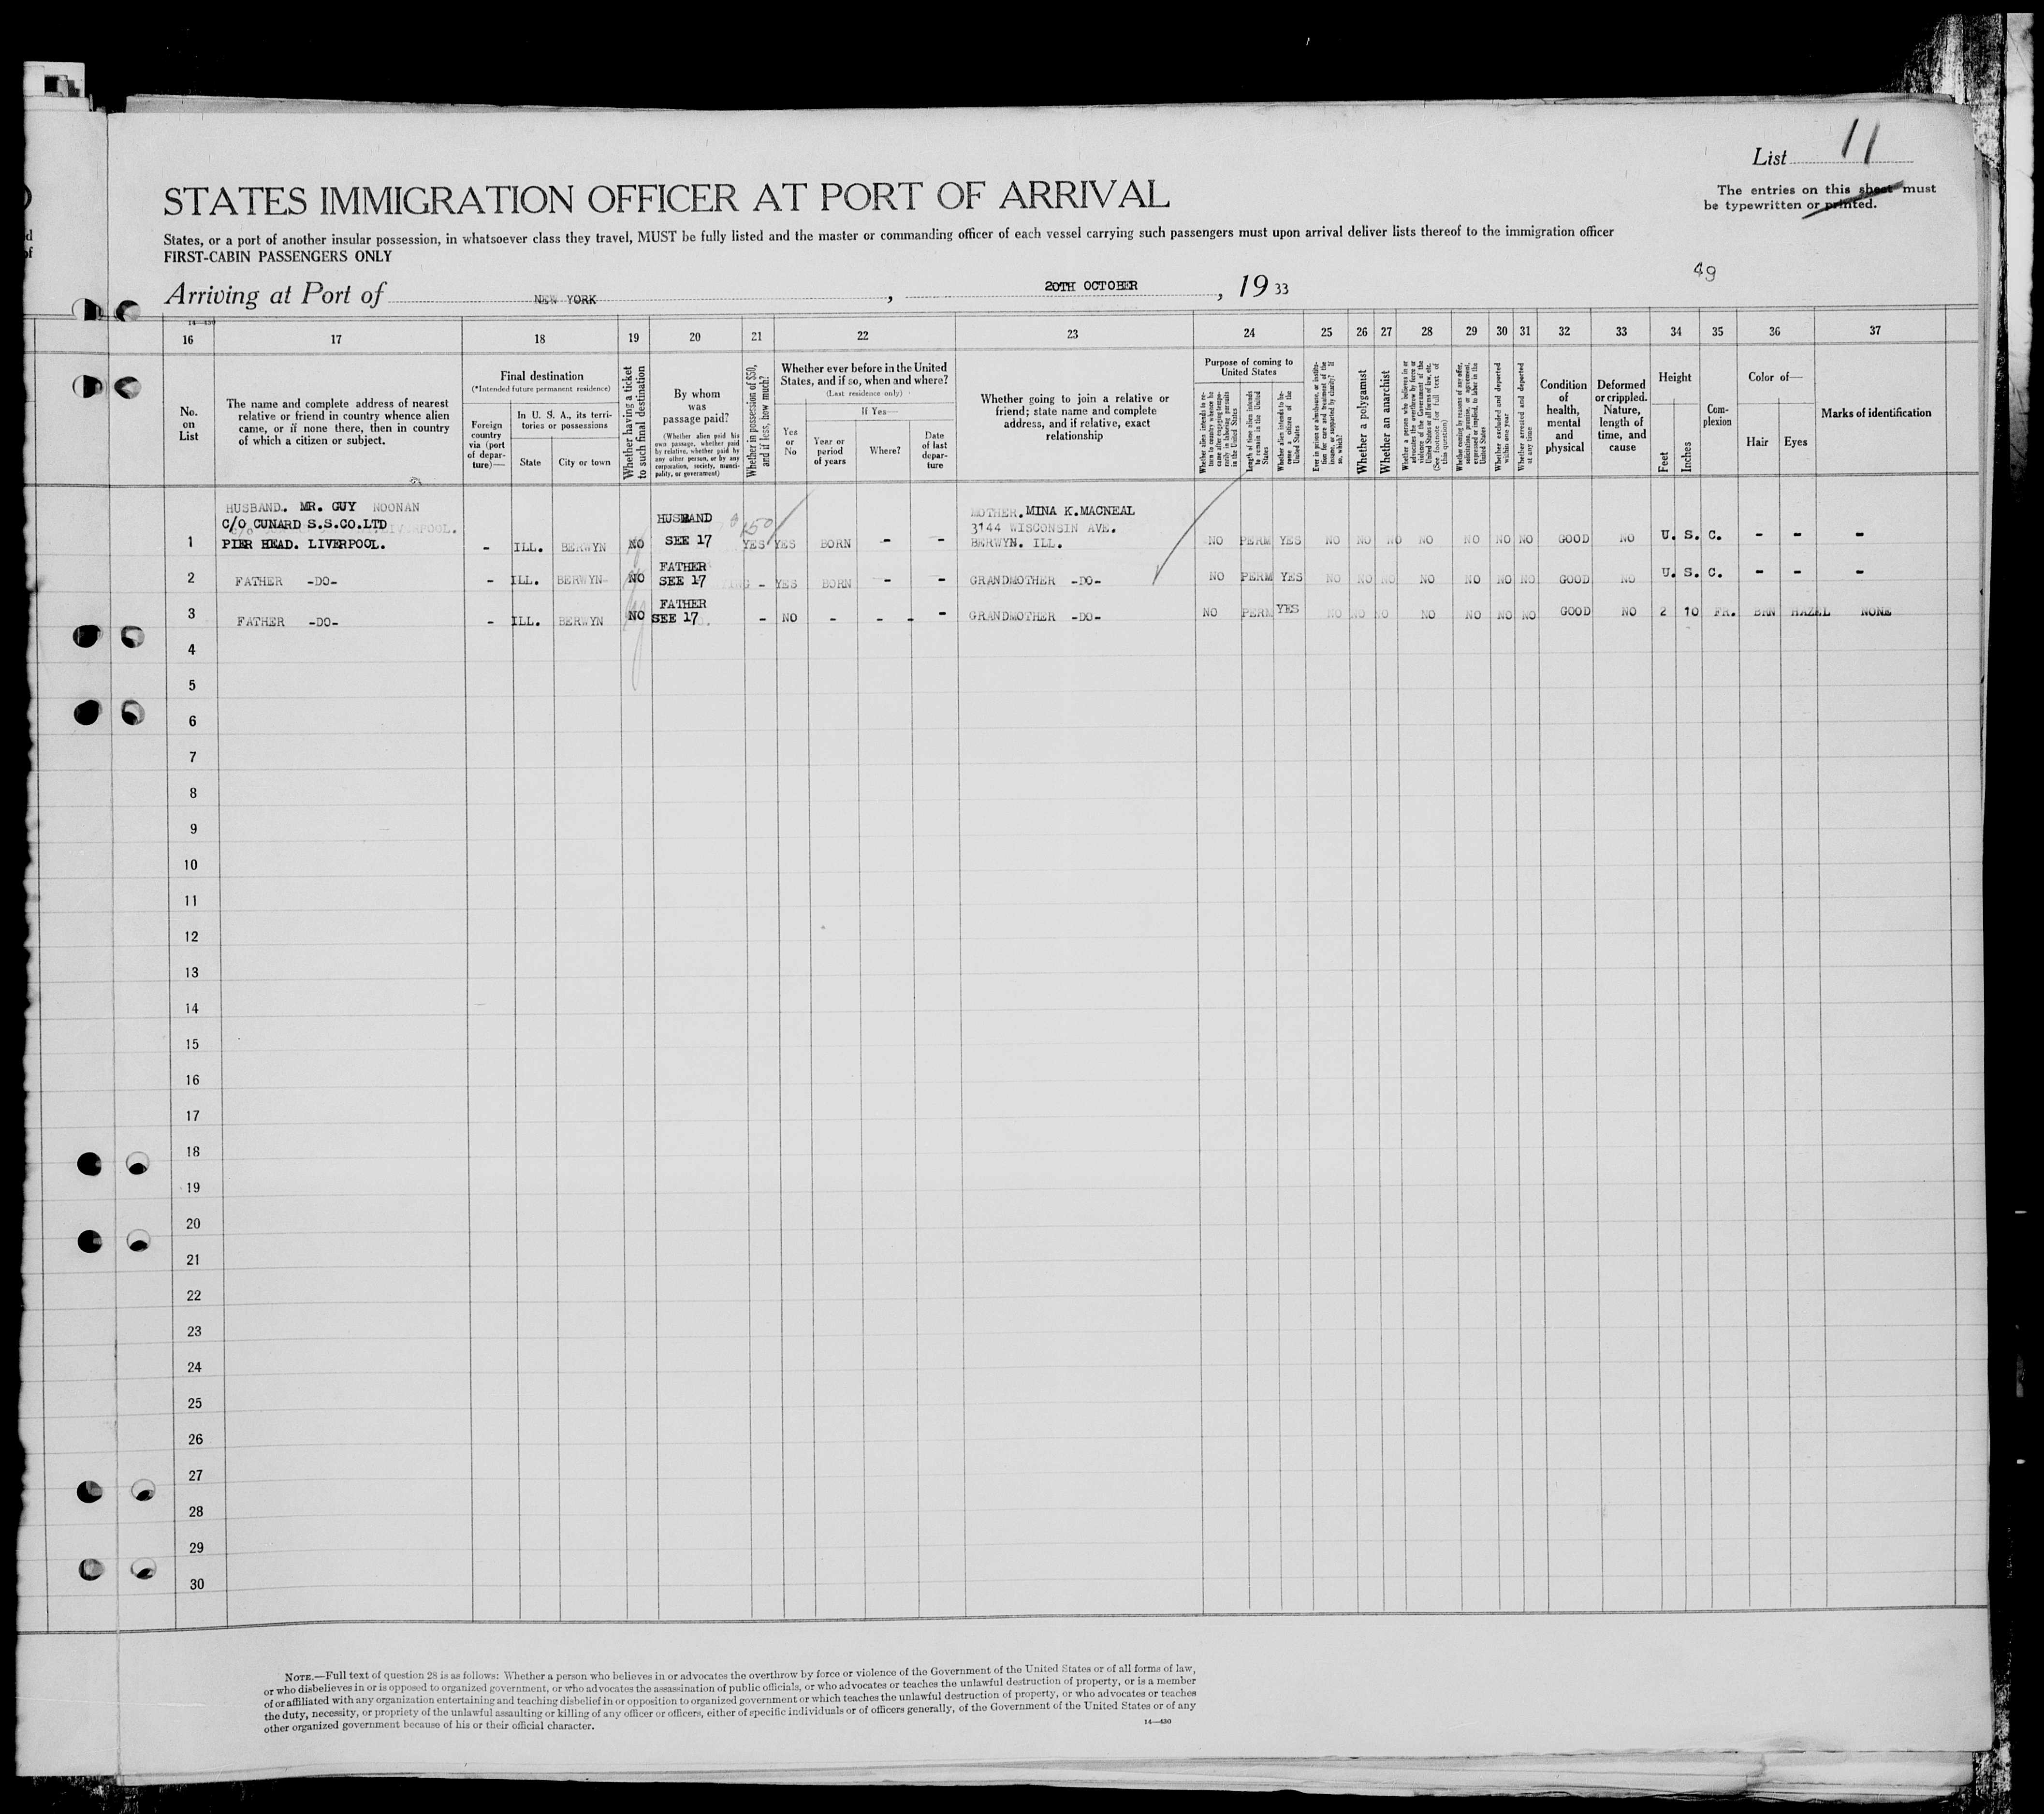 List 11
The entries on this sheet must
be typewritten or printed.
STATES IMMIGRATION OFFICER AT PORT OF ARRIVAL
States, or a port of another insular possession, in whatsoever class they travel, MUST be fully listed and the master or commanding officer of each vessel carrying such passengers must upon arrival deliver lists thereof to the immigration officer
FIRST-CABIN PASSENGERS ONLY
49
Arriving at Port of NEW YORK, 20TH OCTOBER, 19 33
14—430
16 17 18 19 20 21 22 23 24 25 26 27 28 29 30 31 32 33 34 35 36 37
No.
on
List
The name and complete address of nearest
relative or friend in country whence alien
came, or if none there, then in country
of which a citizen or subject.
Final destination
(*Intended future permanent residence)
Foreign
country
via (port
of depar-
ture)—
In U. S. A., its terri-
tories or possessions
State
City or town
Whether having a ticket
to such final destination
By whom
was
passage paid?
(Whether alien paid his
own passage, whether paid
by relative, whether paid by
any other person, or by any
corporation, society, munici-
pality, or government)
Whether in possession of $50,
and if less, how much?
Whether ever before in the United
States, and if so, when and where?
(Last residence only)
Yes
or
No
If Yes—
Year or
period
of years
Where?
Date
of last
depar-
ture
Whether going to join a relative or
friend; state name and complete
address, and if relative, exact
relationship
Purpose of coming to
United States
Whether alien intends to re-
turn to country whence he
came after engaging tempo-
rarily in laboring pursuits
in the United States
Length of time alien intends
to remain in the United
States
Whether alien intends to be-
come a citizen of the
United States
Ever in prison or almshouse, or institu-
tion for care and treatment of the
insane, or supported by charity? If
so, which?
Whether a polygamist
Whether an anarchist
Whether a person who believes in or
advocates the overthrow by force or
violence of the Government of the
United States or all forms of law, etc.
(See footnote for full text of
this question)
Whether coming by reasons of any offer,
solicitation, promise, or agreement,
expressed or implied, to labor in the
United States
Whether excluded and deported
within one year
Whether arrested and deported
at any time
Condition
of
health,
mental
and
physical
Deformed
or crippled.
Nature,
length of
time, and
cause
Height
Feet
Inches
Com-
plexion
Color of—
Hair
Eyes
Marks of identification
HUSBAND. MR. GUY NOONAN
C/O CUNARD S.S.CO.LTD
1 PIER HEAD. LIVERPOOL. - ILL. BERWYN NO HUSBAND SEE 17 $50/ YES YES BORN - - MOTHER. MINA K.MACNEAL
3144 WISCONSIN AVE.
BERWYN. ILL. NO PERM YES NO NO NO NO NO NO NO GOOD NO U. S. C. - - -
2 FATHER -DO- - ILL. BERWYN NO FATHER SEE 17 - YES BORN - - GRANDMOTHER -DO- NO PERM YES NO NO NO NO NO NO NO GOOD NO U. S. C. - - -
3 FATHER -DO- - ILL. BERWYN NO FATHER SEE 17 - NO - - - GRANDMOTHER -DO- NO PERM YES NO NO NO NO NO NO NO GOOD NO 2 10 FR. BRN HAZEL NONE
4
5
6
7
8
9
10
11
12
13
14
15
16
17
18
19
20
21
22
23
24
25
26
27
28
29
30
NOTE.—Full text of question 28 is as follows: Whether a person who believes in or advocates the overthrow by force or violence of the Government of the United States or of all forms of law,
or who disbelieves in or is opposed to organized government, or who advocates the assassination of public officials, or who advocates or teaches the unlawful destruction of property, or is a member
of or affiliated with any organization entertaining and teaching disbelief in or opposition to organized government or which teaches the unlawful destruction of property, or who advocates or teaches
the duty, necessity, or propriety of the unlawful assaulting or killing of any officer or officers, either of specific individuals or of officers generally, of the Government of the United States or of any
other organized government because of his or their official character.
14—430